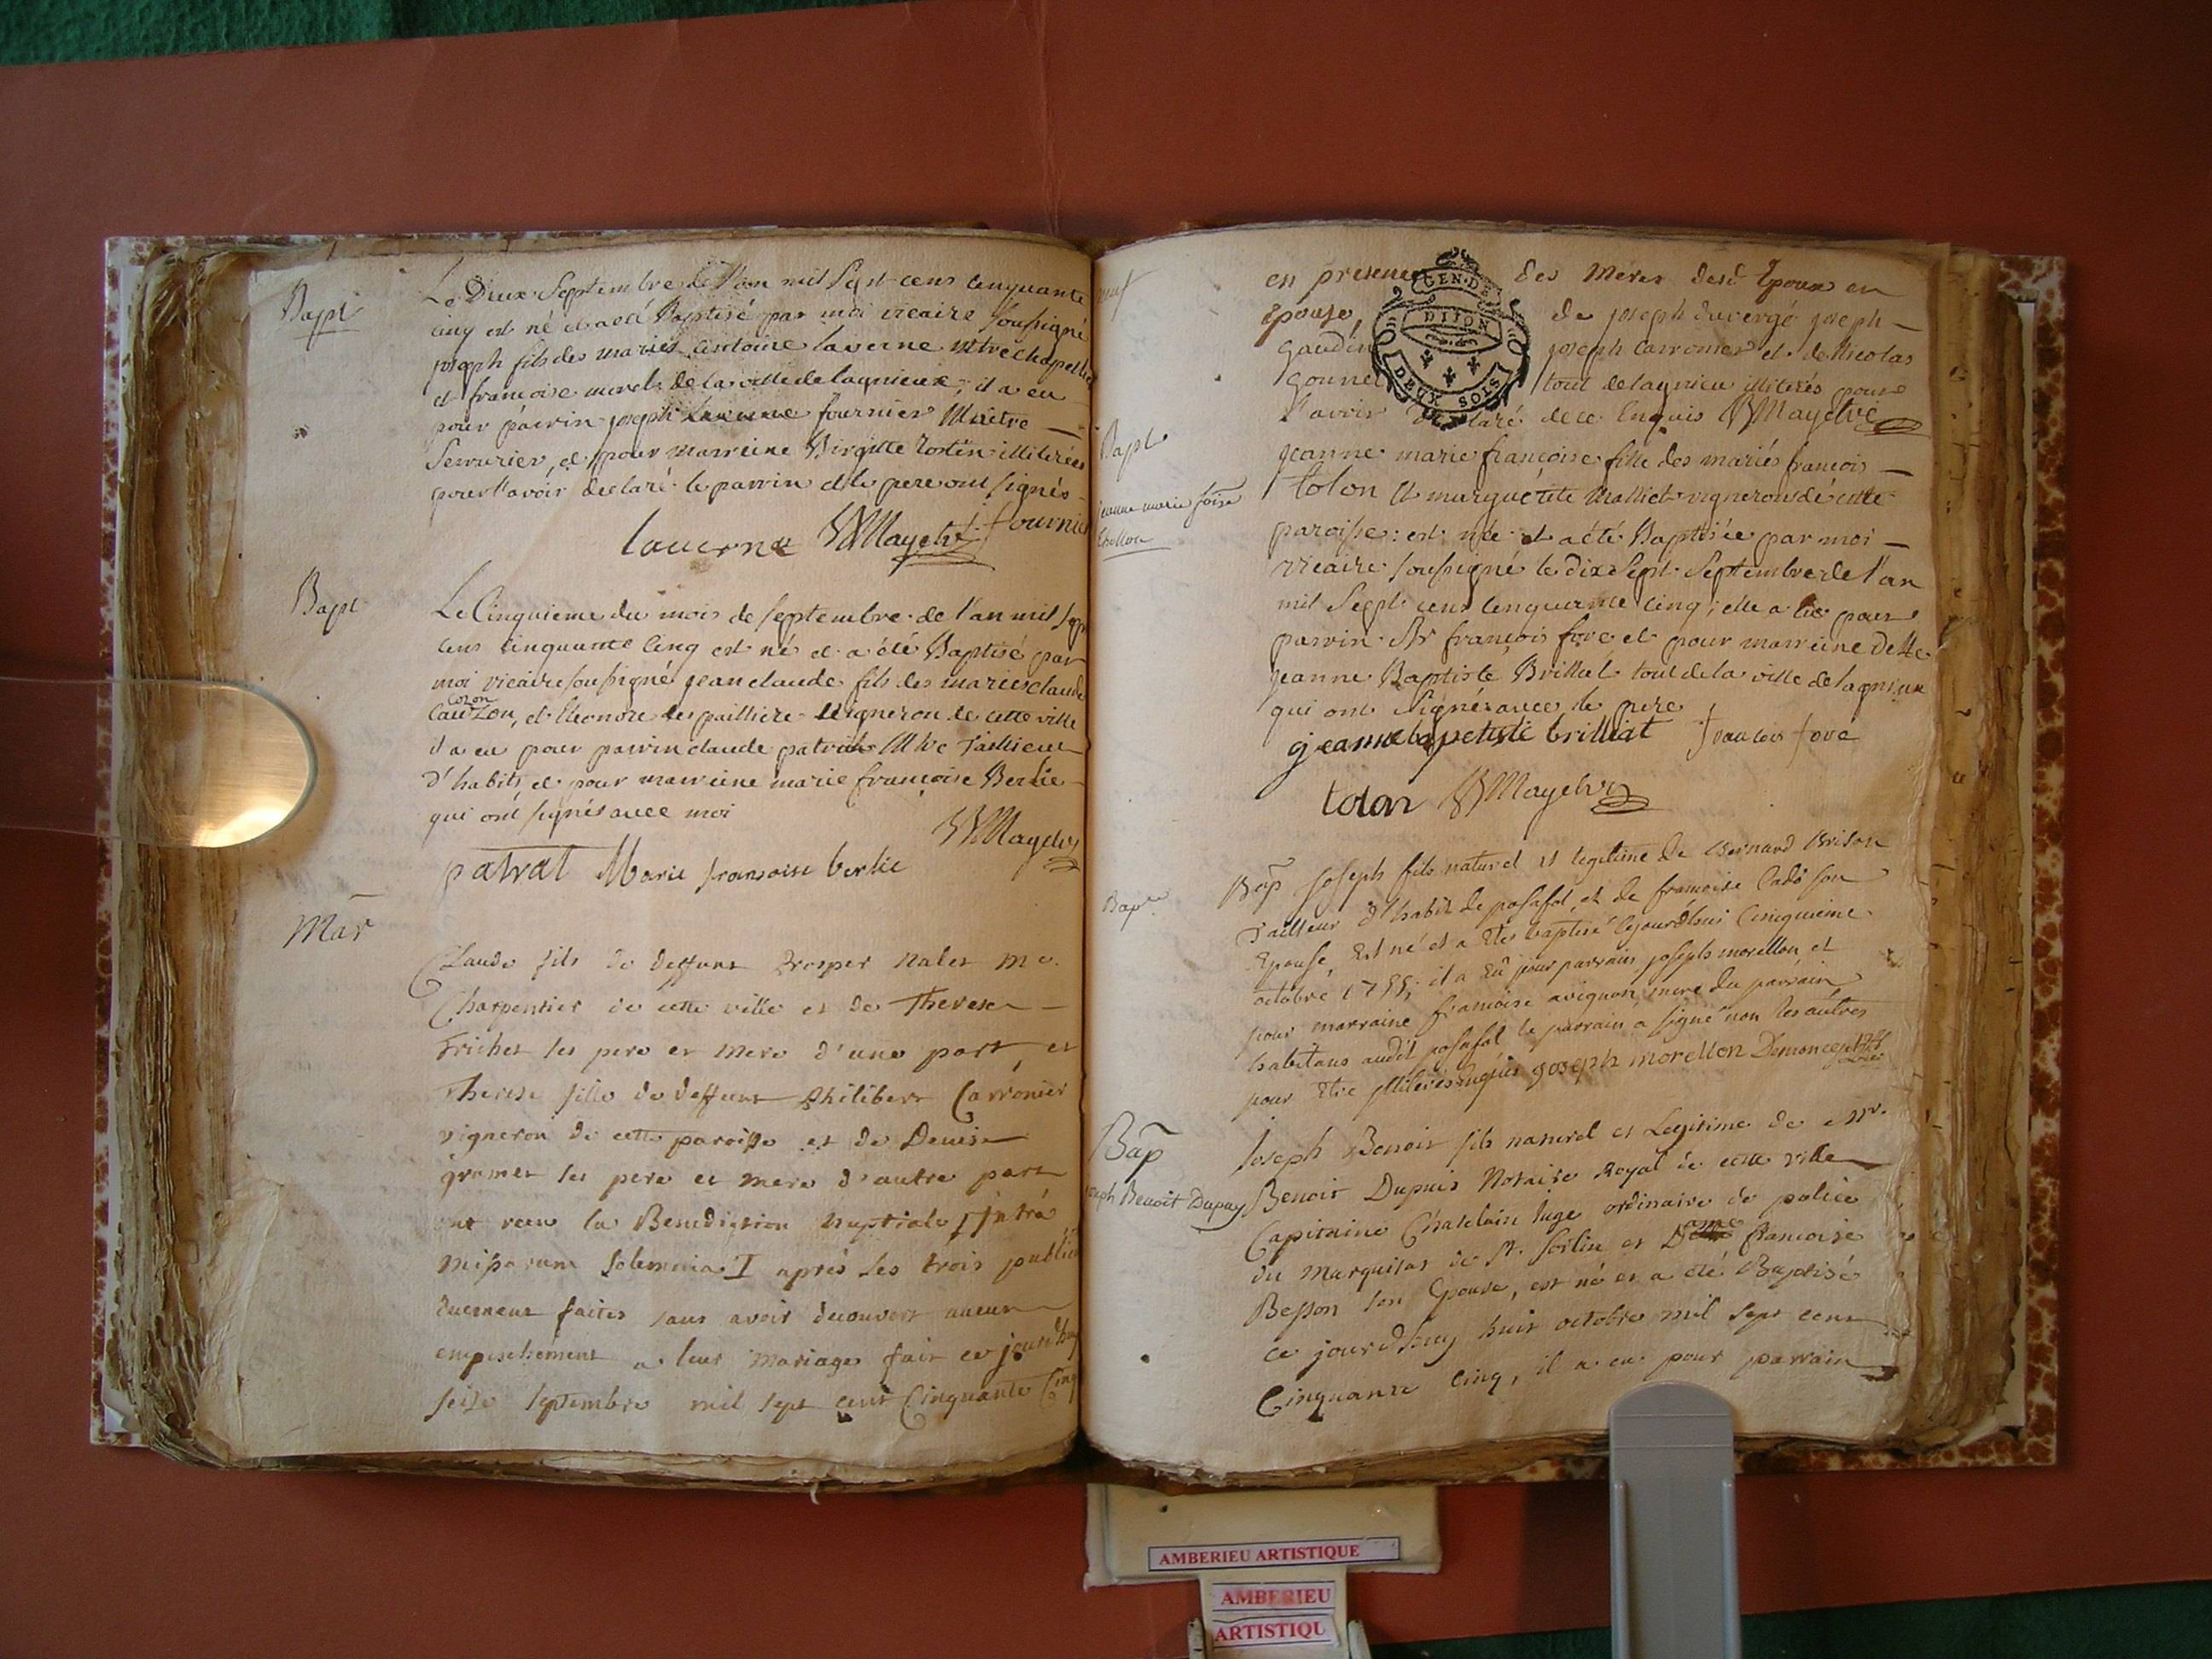 Bapt
Le Deux Septembre de l'an mil Sept cens cinquante
cinq est né et a eté Baptisé par moi vicaire soussigné
joseph fils des mariés antoine laverne mtre chapellier
et francoise morel de la ville de lagnieux, il a eu
pour parrin joseph fournier Maitre
Serrurier, et pour marreine Birgitte illiterées
pour l'avoir declaré le parrin et le pere ont signés
laverne Mayetvi fournier
Bapt
Le Cinquieme du mois de septembre de l'an mil sept
cens cinquante cinq est né et a été Baptisé par
moi vicaire soussigné jean claude fils des mariés claude
Colon
et Eleonore des pailliere vigneron de cette ville
il a eu pour parrin claude patrat Mtre Tailleur
d'habits, et pour marreine marie françoise Berlie
qui ont signés avec moi
Mayetvi
patrat Marie francoise berlie
Mar
Claude fils de deffunt Prosper Nalet me.
Charpentier de cette ville et de Therese
Trichet ses pere et mere d'une part, et
Therese fille de deffunt Philibert Carronier
vigneron de cette paroisse et de Denise
gramet ses pere et mere d'autre part
ont recu la Benediction Nuptiale intra
missarum solemnia I après les trois publica
duement faites sans avoir decouvert aucun
empeschement a leur Mariage fait ce jourd'huy
seise septembre mil sept cent Cinquante Cinq
en presence des Meres desd Epoux en
Epouse, de joseph duvergé joseph
gaudin joseph carronier et de Nicolas
gonnet tout de lagnieu illiterés pour
l'avoir declaré de ce Enquis Mayetvi
GEN. DE
DIJON
DEUX SOLS
Bapt
jeanne marie foise
jeanne marie francoise fille des mariés francois
tolon et marguérite Malliet vigneron de cette
paroisse: est née et a été Baptisée par moi
vicaire soussigné le dix Sept Septembre de l'an
mil Sept cens cinquante cinq; elle a eue pour
parrin Sr françois fore et pour marreine Delle
jeanne Baptiste Brillat tout de la ville de lagnieux
qui ont signés avec le pere
jeanne baptiste brilliat francois fore
tolon Mayetvi
Bapt
Bap Joseph fils naturel et legitime de Bernard Brison
Tailleur d'habit de posafol, et de francoise Cado son
Epouse, Est né et a Eté baptisé cejourdhui Cinquieme
octobre 1755; il a Eû pour parrain joseph morellon, et
pour marraine francoise avignon, mere du parrain
habitans audit posafol le parrain a signé non les autres
pour Etre illiteres Enquis joseph morellon
Bap
Joseph Benoit Dupuy
Joseph Benoit fils naturel et Legitime de Mr.
Benoit Dupuis Notaire Royal de cette ville
Capitaine Chatelain Juge ordinaire de police
du Marquisat de St. Sorlin et Dame francoise
Besson son Epouse, est né et a été Baptisé
ce jourdhuy huit octobre mil sept cent
Cinquante cinq, il a eu pour parrain
AMBERIEU ARTISTIQUE
AMBERIEU
ARTISTIQU